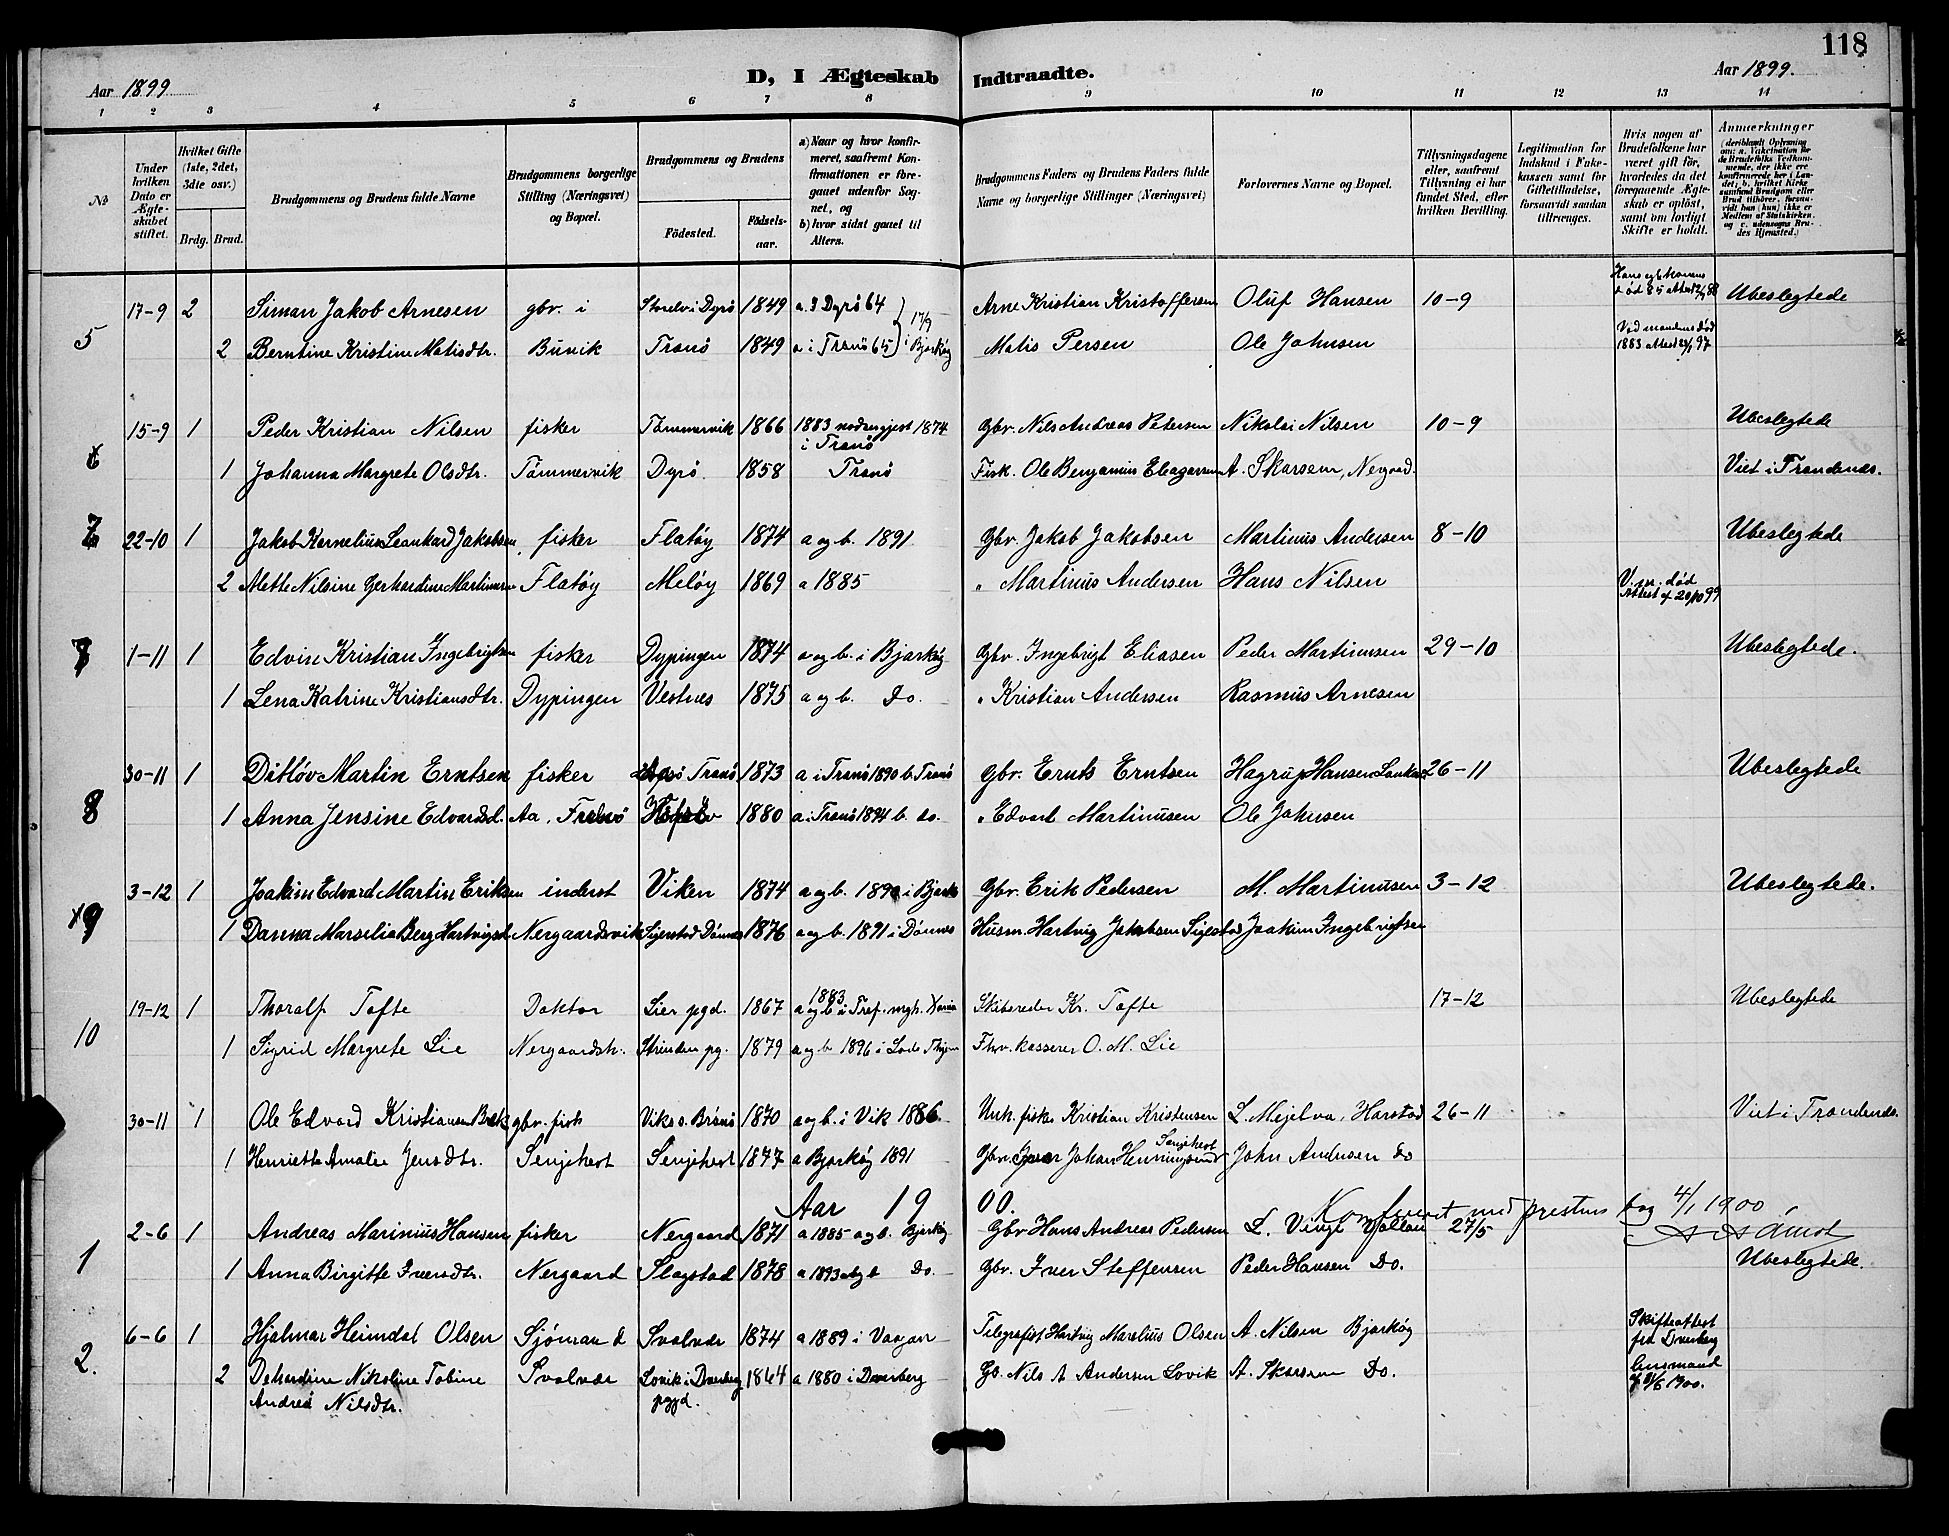 118
Aar 1899
D, I Ægteskab Indtraadte.
Aar 1899.
1 2 3 4 5 6 7 8 9 10 11 12 13 14
No
Under hvilken Dato er Ægteskabet stiftet.
Hvilket Gifte (1ste, 2det, 3die osv.)
Brdg. Brud.
Brudgommens og Brudens fulde Navne
Brudgommens borgerlige Stilling (Næringsvei) og Bopæl.
Brudgommens og Brudens
Födested. Födselsaar.
a) Naar og hvor konfirmeret, saafremt Konfirmationen er foregaaet udenfor Sognet, og
b) hvor sidst gaaet til Alters.
Brudgommens Faders og Brudens Faders fulde Navne og borgerlige Stillinger (Næringsvei)
Forlovernes Navne og Bopæl.
Tillysningsdagene eller, saafremt Tillysning ei har fundet Sted, efter hvilken Bevilling.
Legitimation for Indskud i Enkekassen samt for Giftetilladelse, forsaavidt saadan tiltrænges.
Hvis nogen af Brudefolkene har været gift för, hvorledes da det foregaaende Ægteskab er oplöst, samt om lovligt Skifte er holdt.
Anmærkninger (deriblandt Oplysning om: a. Vakcination for de Brudefolks Vedkommende, der ikke ere konfirmerede her i Landet; b. hvilket Kirkesamfund Brudgom eller Brud tilhörer, forsaavidt han (hun) ikke er Medlem af Statskirken, og c. udensogns Brudes Hjemsted.)
5 17-9 2 Simon Jakob Arnesen gbr. i Storelv i Dyrö 1849 a. i Dyrö 64 Arne Kristian Kristoffersen Oluf Hansen 10-9 Ubeslegtede
2 Berntine Kristine Matisdtr. Bunik Tranö 1849 a i Tranö 65 17/9 i Bjarköy Matis Persen Ole Johnsen Ved mandens död 1883 attest 97
6 15-9 1 Peder Kristian Nilsen fisker Tömmervik 1866 1883 i Tranö 1874 Gbr. Nils Andreas Petersen Nikolai Nilsen 10-9 Ubeslegtede
1 Johanna Margrete Olsdtr. Tömmervik Dyrö 1858 Tranö Fisk. Ole Benjamin Eleasarsen A. Skarsem, Nergaard Viet i Trondenes.
7 22-10 1 Jakob Kornelius Leonhard Jakobsen fisker Flatöy 1874 a og b. 1891 Gbr. Jakob Jakobsen Martinus Andersen 8-10 Ubeslegtede
2 Mette Nilsine Gerhardine Martinsen Flatöy Melöy 1869 a 1885 " Martinus Andersen Hans Nilsen V. m. död Attest af 20/10 99
7 1-11 1 Edvin Kristian Ingebrigtsen fisker Dypingen 1874 a og b. i Bjarköy Gbr. Ingebrigt Eliasen Peder Martinussen 29-10 Ubeslegtede.
1 Lena Katrine Kristiansdtr. Dypingen Vestnes 1875 a og b. Do. " Kristian Andersen Rasmus Arnesen
8 30-11 1 Ditlöv Martin Erntsen fisker Tranö 1873 a i Tranö 1890 b. Tranö Gbr. Ernts Erntsen Hagrup Hansen 26-11 Ubeslegtede
1 Anna Jensine Edvardsd. Aa, Tranö 1880 a i Tranö 1894 b. do. " Edvart Martinusen Ole Johnsen
9 3-12 1 Joakim Edvard Martin Eriksen inderst Viken 1874 a og b. 1890 i Bjarkö Gbr. Erik Pedersen M. Martinusen 3-12 Ubeslegtede.
1 Danna Marselia Berg Hartvigsd. Nergaardsvik Sigerstad Dönnes 1876 a og b. 1891 i Dönnes Husm. Hartvig Jakobsen Sigestad Joakim Ingebrigtsen
10 19-12 1 Thoralf Tofte Doktor Lier pgd. 1867 a og b 1883 i Tref. mgh. Xania Skibsreder Kr. Tofte 17-12 Ubeslegtede
1 Sigrid Margrete Lie Nergaardsh. Strinden pg. 1879 a og b 1896 i Lade Thjem Fhv. kasserer O. M. Lie
30-11 1 Ole Edvard Kristiansen Bæk gbr. fisk Vik s. Brönö 1870 a og b. i Vik 1886 Unk. fisker Kristian Kristensen L. Mejelva, Harstad 26-11 Viet i Trondenes.
1 Henriette Amalie Jensdtr. Senjehest Senjehest 1877 a Bjarköy 1891 Gbr. Johan Henningsen Senjehest John Andersen do
Aar 1900.
Konfereret med prestens bog 4/1 1900
1 2-6 1 Andreas Marinius Hansen fisker Nergaard 1871 a 1885 a og b. Bjarköy Gbr Hans Andreas Pedersen L. Vinje Vollan 27/5
1 Anna Birgitte Iversdtr. Nergaard Slagstad 1878 a 1893 a og b Do. Gbr. Iver Steffensen Peder Hansen Do. Ubeslegtede.
2. 6-6 1 Hjalmar Heimdal Olsen Sjömand Svolvær 1874 a 1889 i Vaagan Telegrafist Hartvig Marelius Olsen A. Nilsen Bjarköy Skifteattest fra Dverberg lensmand 1900.
2 Dehardine Nikoline Tobine Andrea Nilsdtr. Svolvær Lovik i Dverberg pgjd. 1864 a 1880 i Dverberg Gb. Nils A Andersen Lovik A. Skarsem Do.